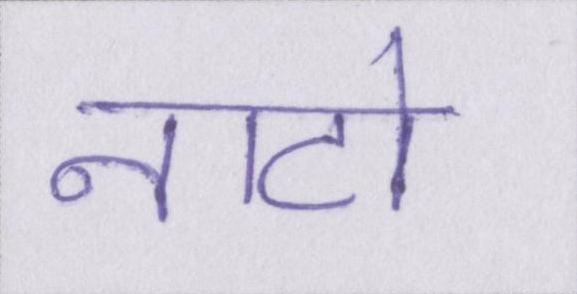 नाटो